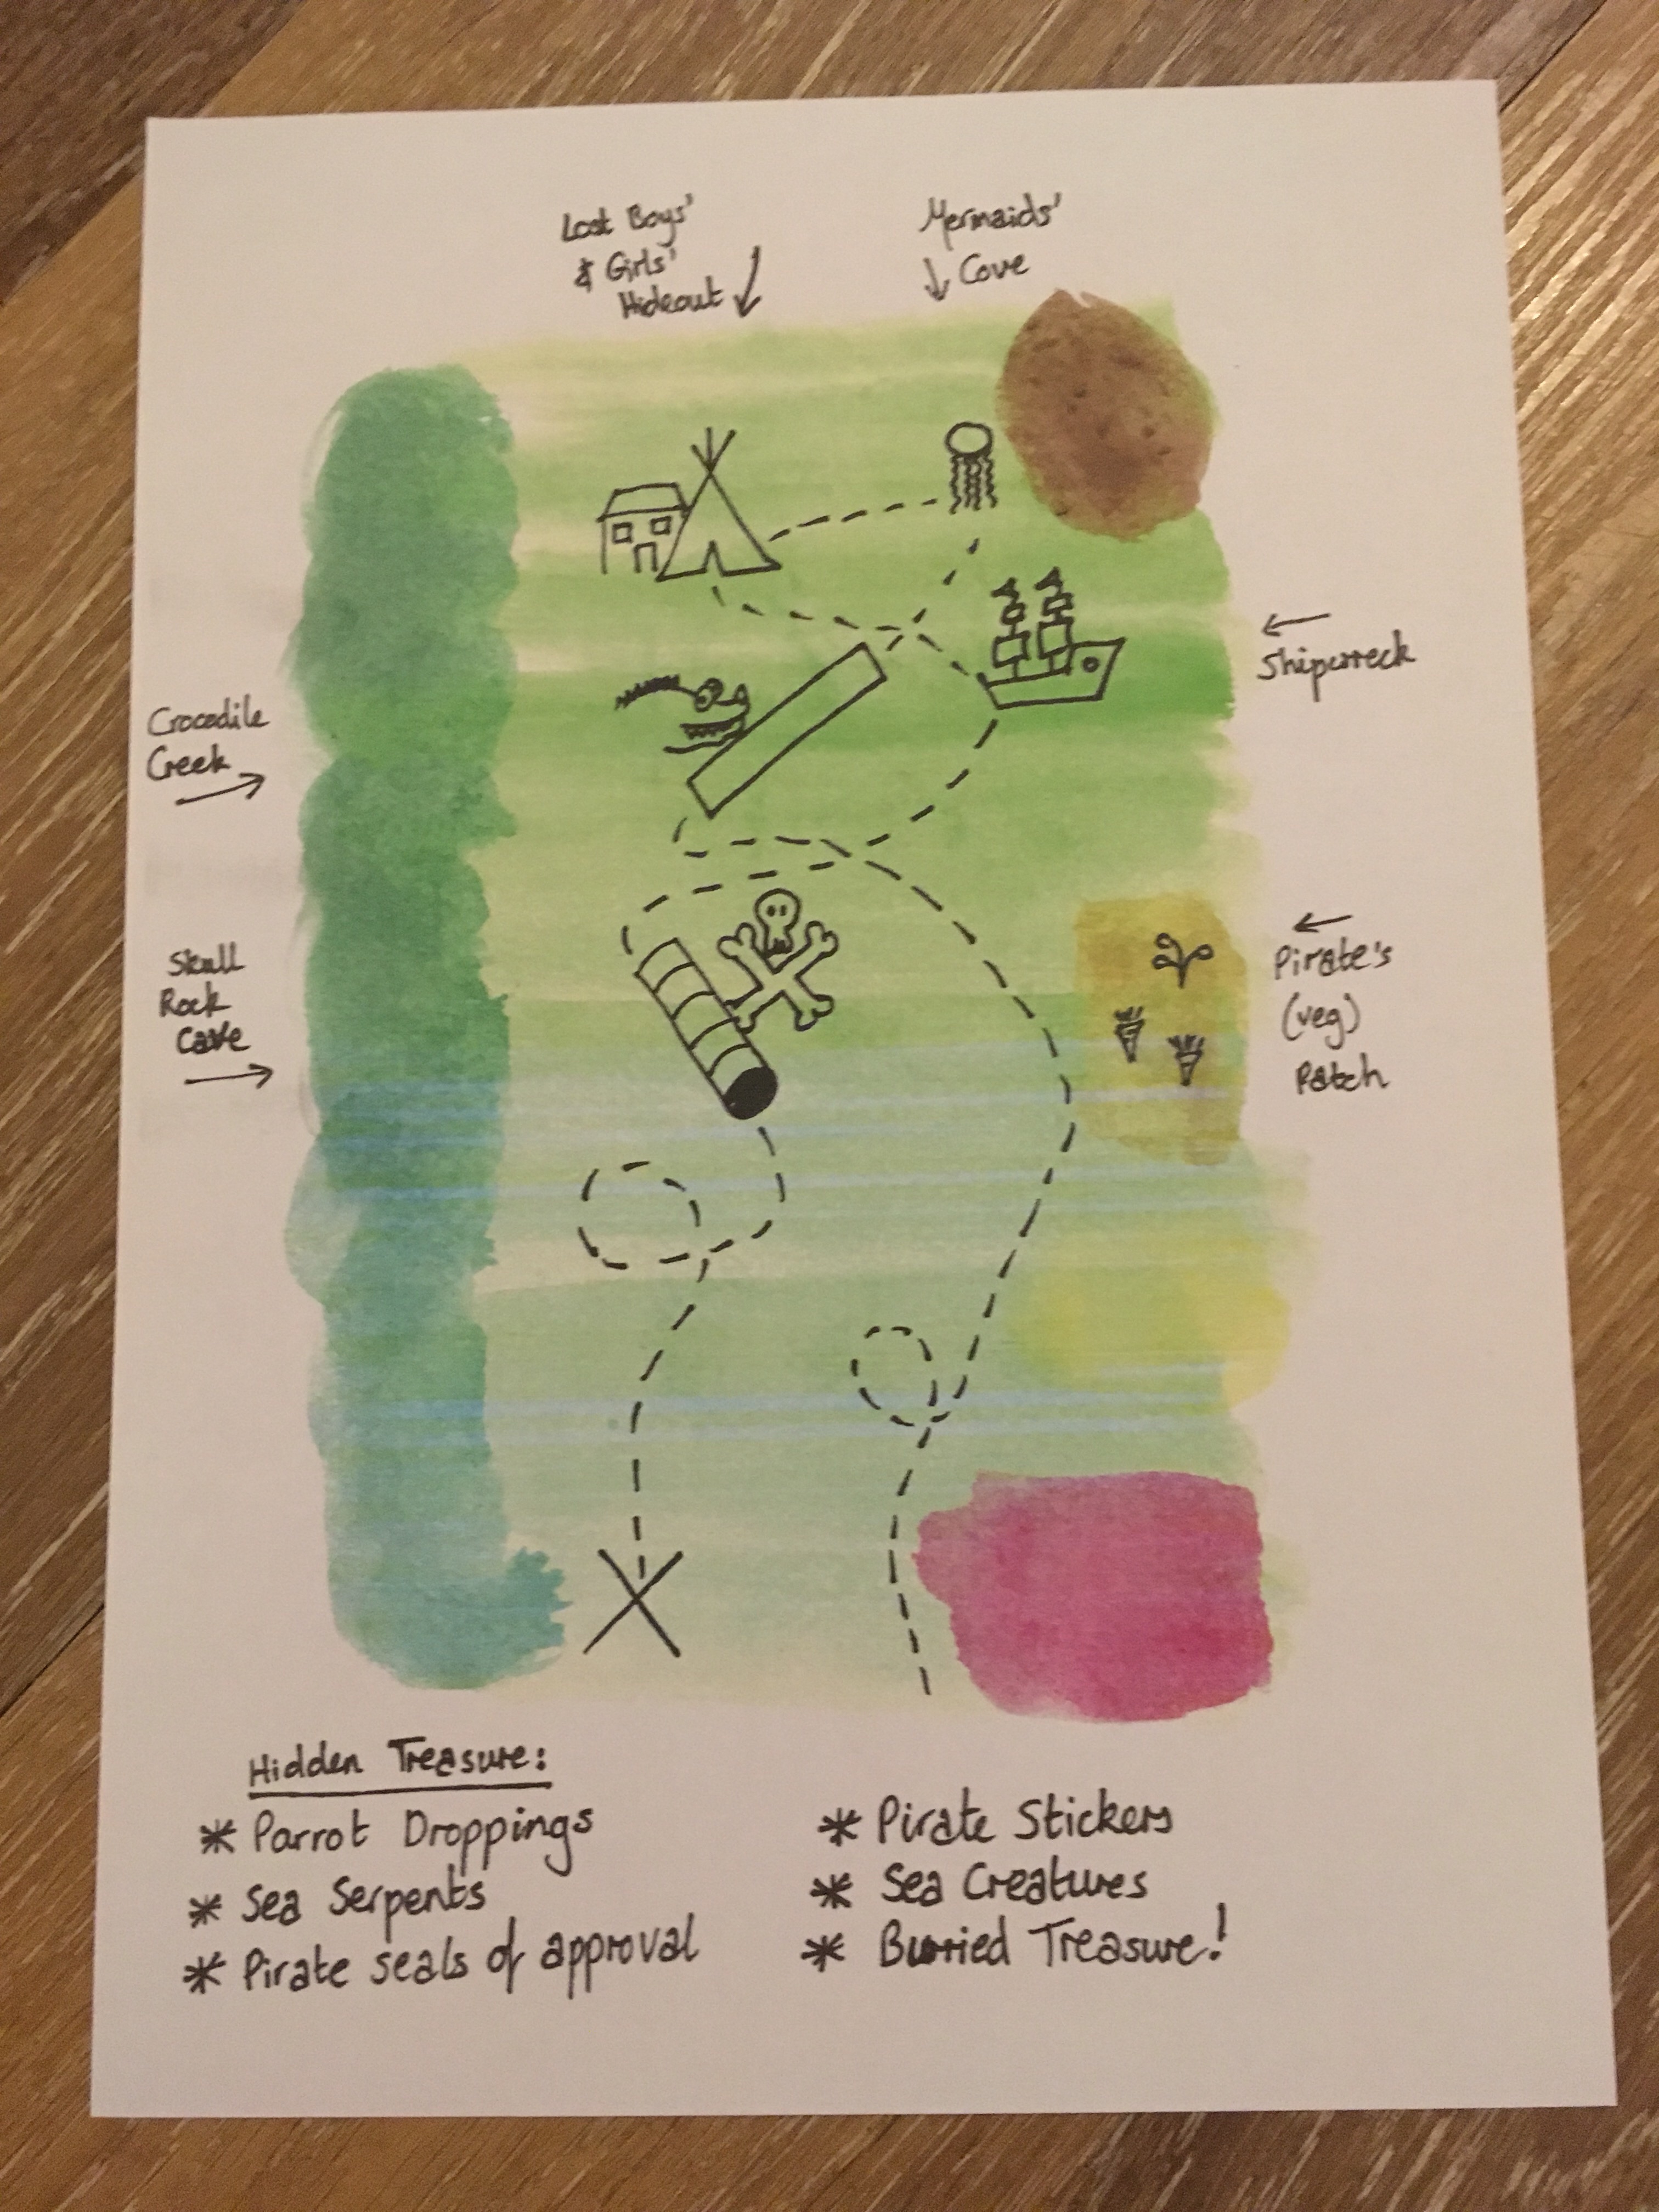 Lost Boys'
& Girls'
Hideout
Mermaids'
Cove
Shipwreck
Crocodile
Creek
Skull
Rock
Cave
Pirate's
(veg)
Patch
Hidden Treasure:
* Parrot Droppings
* Sea Serpents
* Pirate seals of approval
* Pirate Stickers
* Sea Creatures
* Burried Treasure!